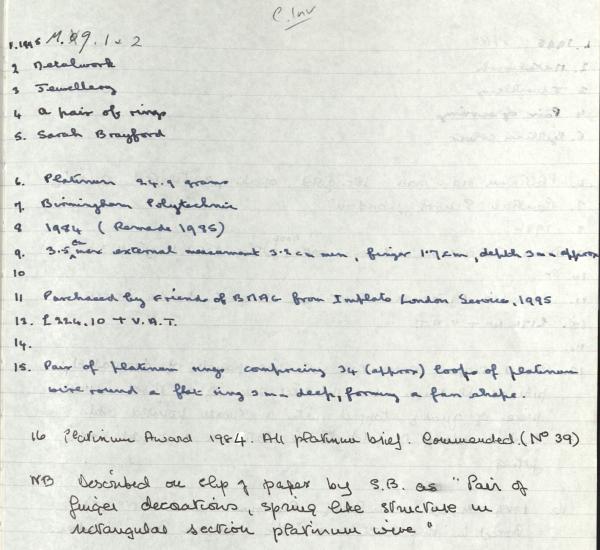 C. Inv
1. 1995 M.9. 1 & 2
2 Metalwork
3 Jewellery
4 a pair of rings
5. Sarah Brayford
6. Platinum 24.9 grams
7. Birmingham Polytechnic
8 1984 (Remade 1985)
9. 3.5 cm max external measurement 3.2 cm min, finger 1.7 cm, depth 3mm approx
10
11 Purchased by Friends of BMAG from Implats London Service, 1995
12. £224.10 + V.A.T.
14.
15. Pair of platinum rings comprising 34 (approx) loops of platinum
wire round a flat ring 3mm deep, forming a fan shape.
16 Platinum Award 1984. All platinum brief. Commended. (No 39)
NB Described on slip of paper by S.B. as "Pair of
finger decorations, spring like structure in
rectangular section platinum wire"